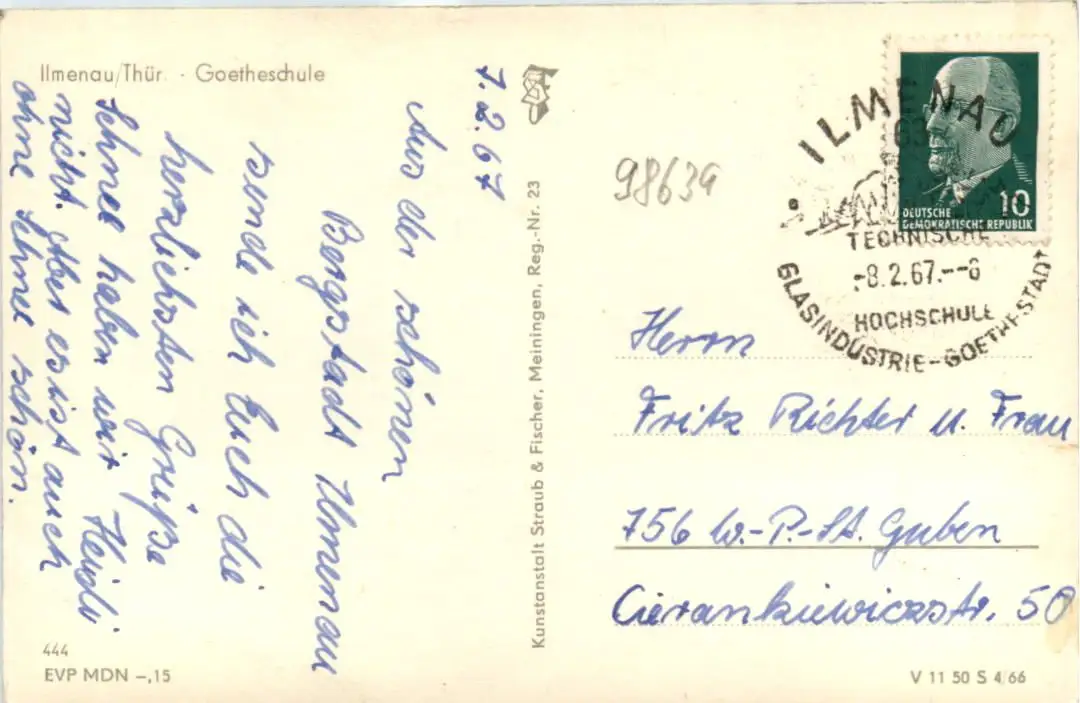 Ilmenau/Thür. · Goetheschule
7.2.67
Aus der schönen
Bergstadt Ilmenau
sende ich Euch die
herzlichsten Grüße
Schnee haben wir
nicht. Aber es ist auch
ohne Schnee schön.
Heidi.
444
EVP MDN –,15
Kunstanstalt Straub & Fischer, Meiningen, Reg.-Nr. 23
98639
10
DEUTSCHE
DEMOKRATISCHE REPUBLIK
ILMENAU
63
TECHNISCHE
-8.2.67.--8
HOCHSCHULE
GLASINDUSTRIE-GOETHESTADT
Herrn
Fritz Richter u. Frau
756 W.-P.-St. Guben
Cierankiewiczstr. 50
V 11 50 S 4/66